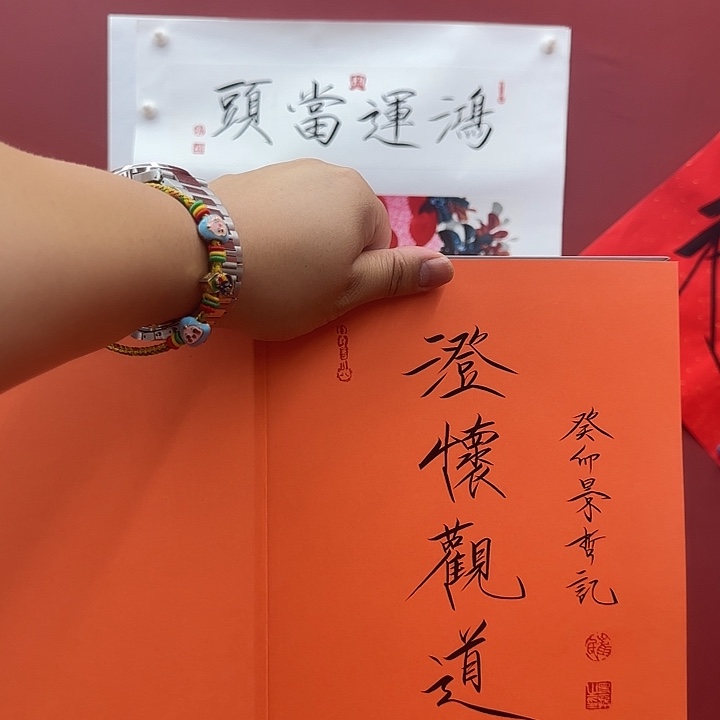 鴻運當頭
澄懷觀道
癸卯景哲記